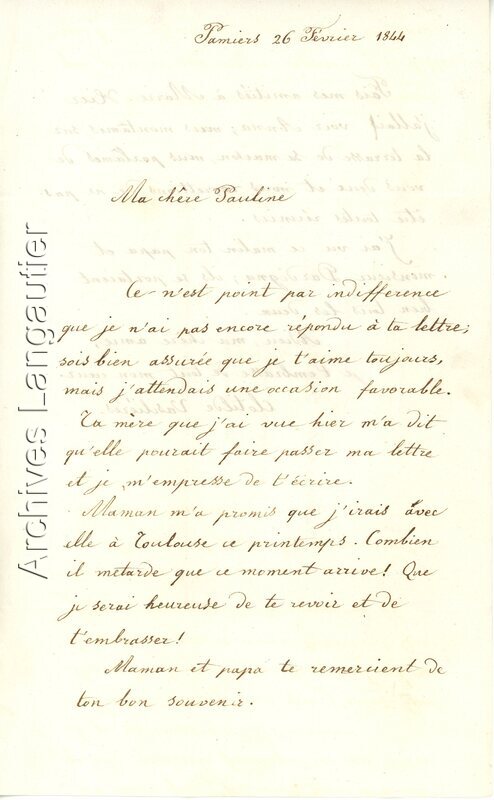 Pamiers 26 Février 1844
Ma chère Pauline
Ce n'est point par indifference
que je n'ai pas encore répondu à ta lettre;
sois bien assurée que je t'aime toujours,
mais j'attendais une occasion favorable.
Ta mère que j'ai vue hier m'a dit
qu'elle pourait faire passer ma lettre
et je m'empresse de t'écrire.
Maman m'a promis que j'irais avec
elle à Toulouse ce printemps. Combien
il metarde que ce moment arrive! Que
je serai heureuse de te revoir et de
t'embrasser!
Maman et papa te remercient de
ton bon souvenir.
Archives Langautier